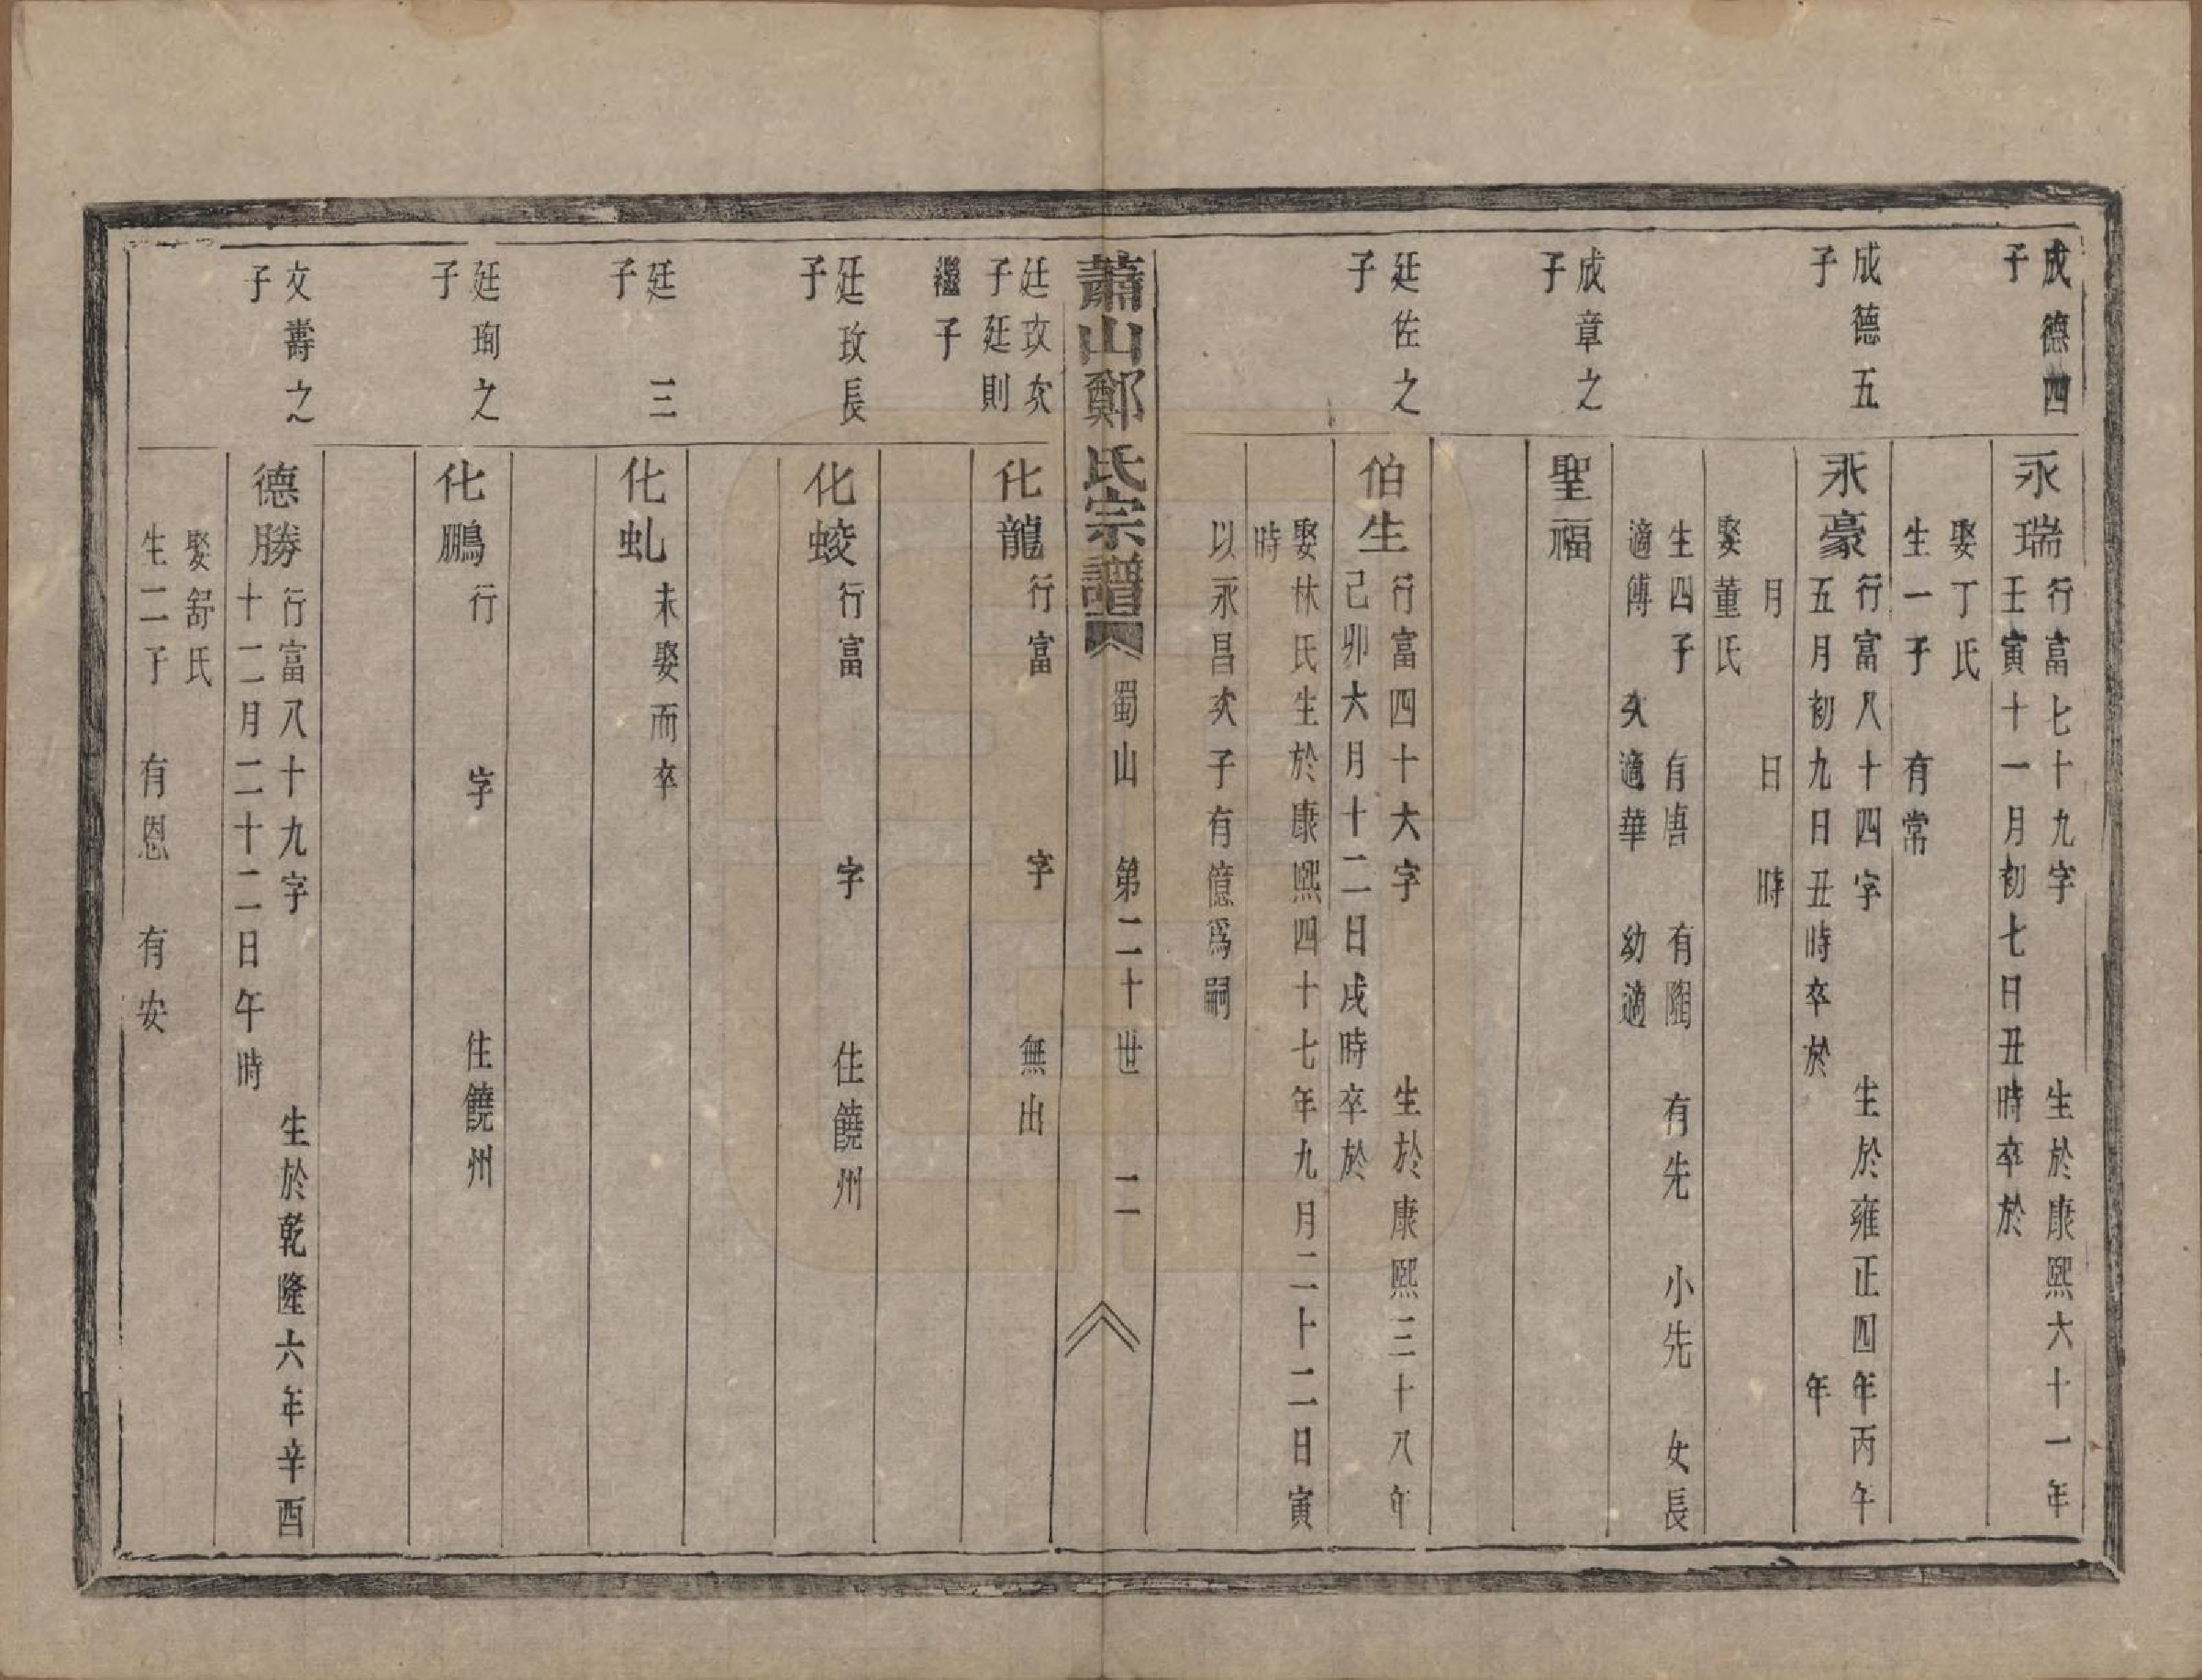 成德四
子
永瑞
行富七十九字　生於康熙六十一年
壬寅十一月初七日丑時卒於
娶丁氏
生一子　有常
成德五
子
永豪
行富八十四字　生於雍正四年丙午
五月初九日丑時卒於　年
月　日　時
娶董氏
生四子　有唐　有陶　有先　小先　女長
適傅　次適華　幼適
成章之
子
聖福
廷佐之
子
伯生
行富四十六字　生於康熙三十八年
己卯六月十二日戌時卒於
娶林氏生於康熙四十七年九月二十二日寅
時
以永昌次子有億爲嗣
蕭山鄭氏宗譜　蜀山　第二十世　二
廷玫次
子廷則
繼子
化龍
行富　字　無出
廷玫長
子
化蛟
行富　字　住饒州
廷　三
子
化虬
未娶而卒
廷珣之
子
化鵬
行　字　住饒州
文壽之
子
德勝
行富八十九字　生於乾隆六年辛酉
十二月二十二日午時
娶舒氏
生二子　有恩　有安